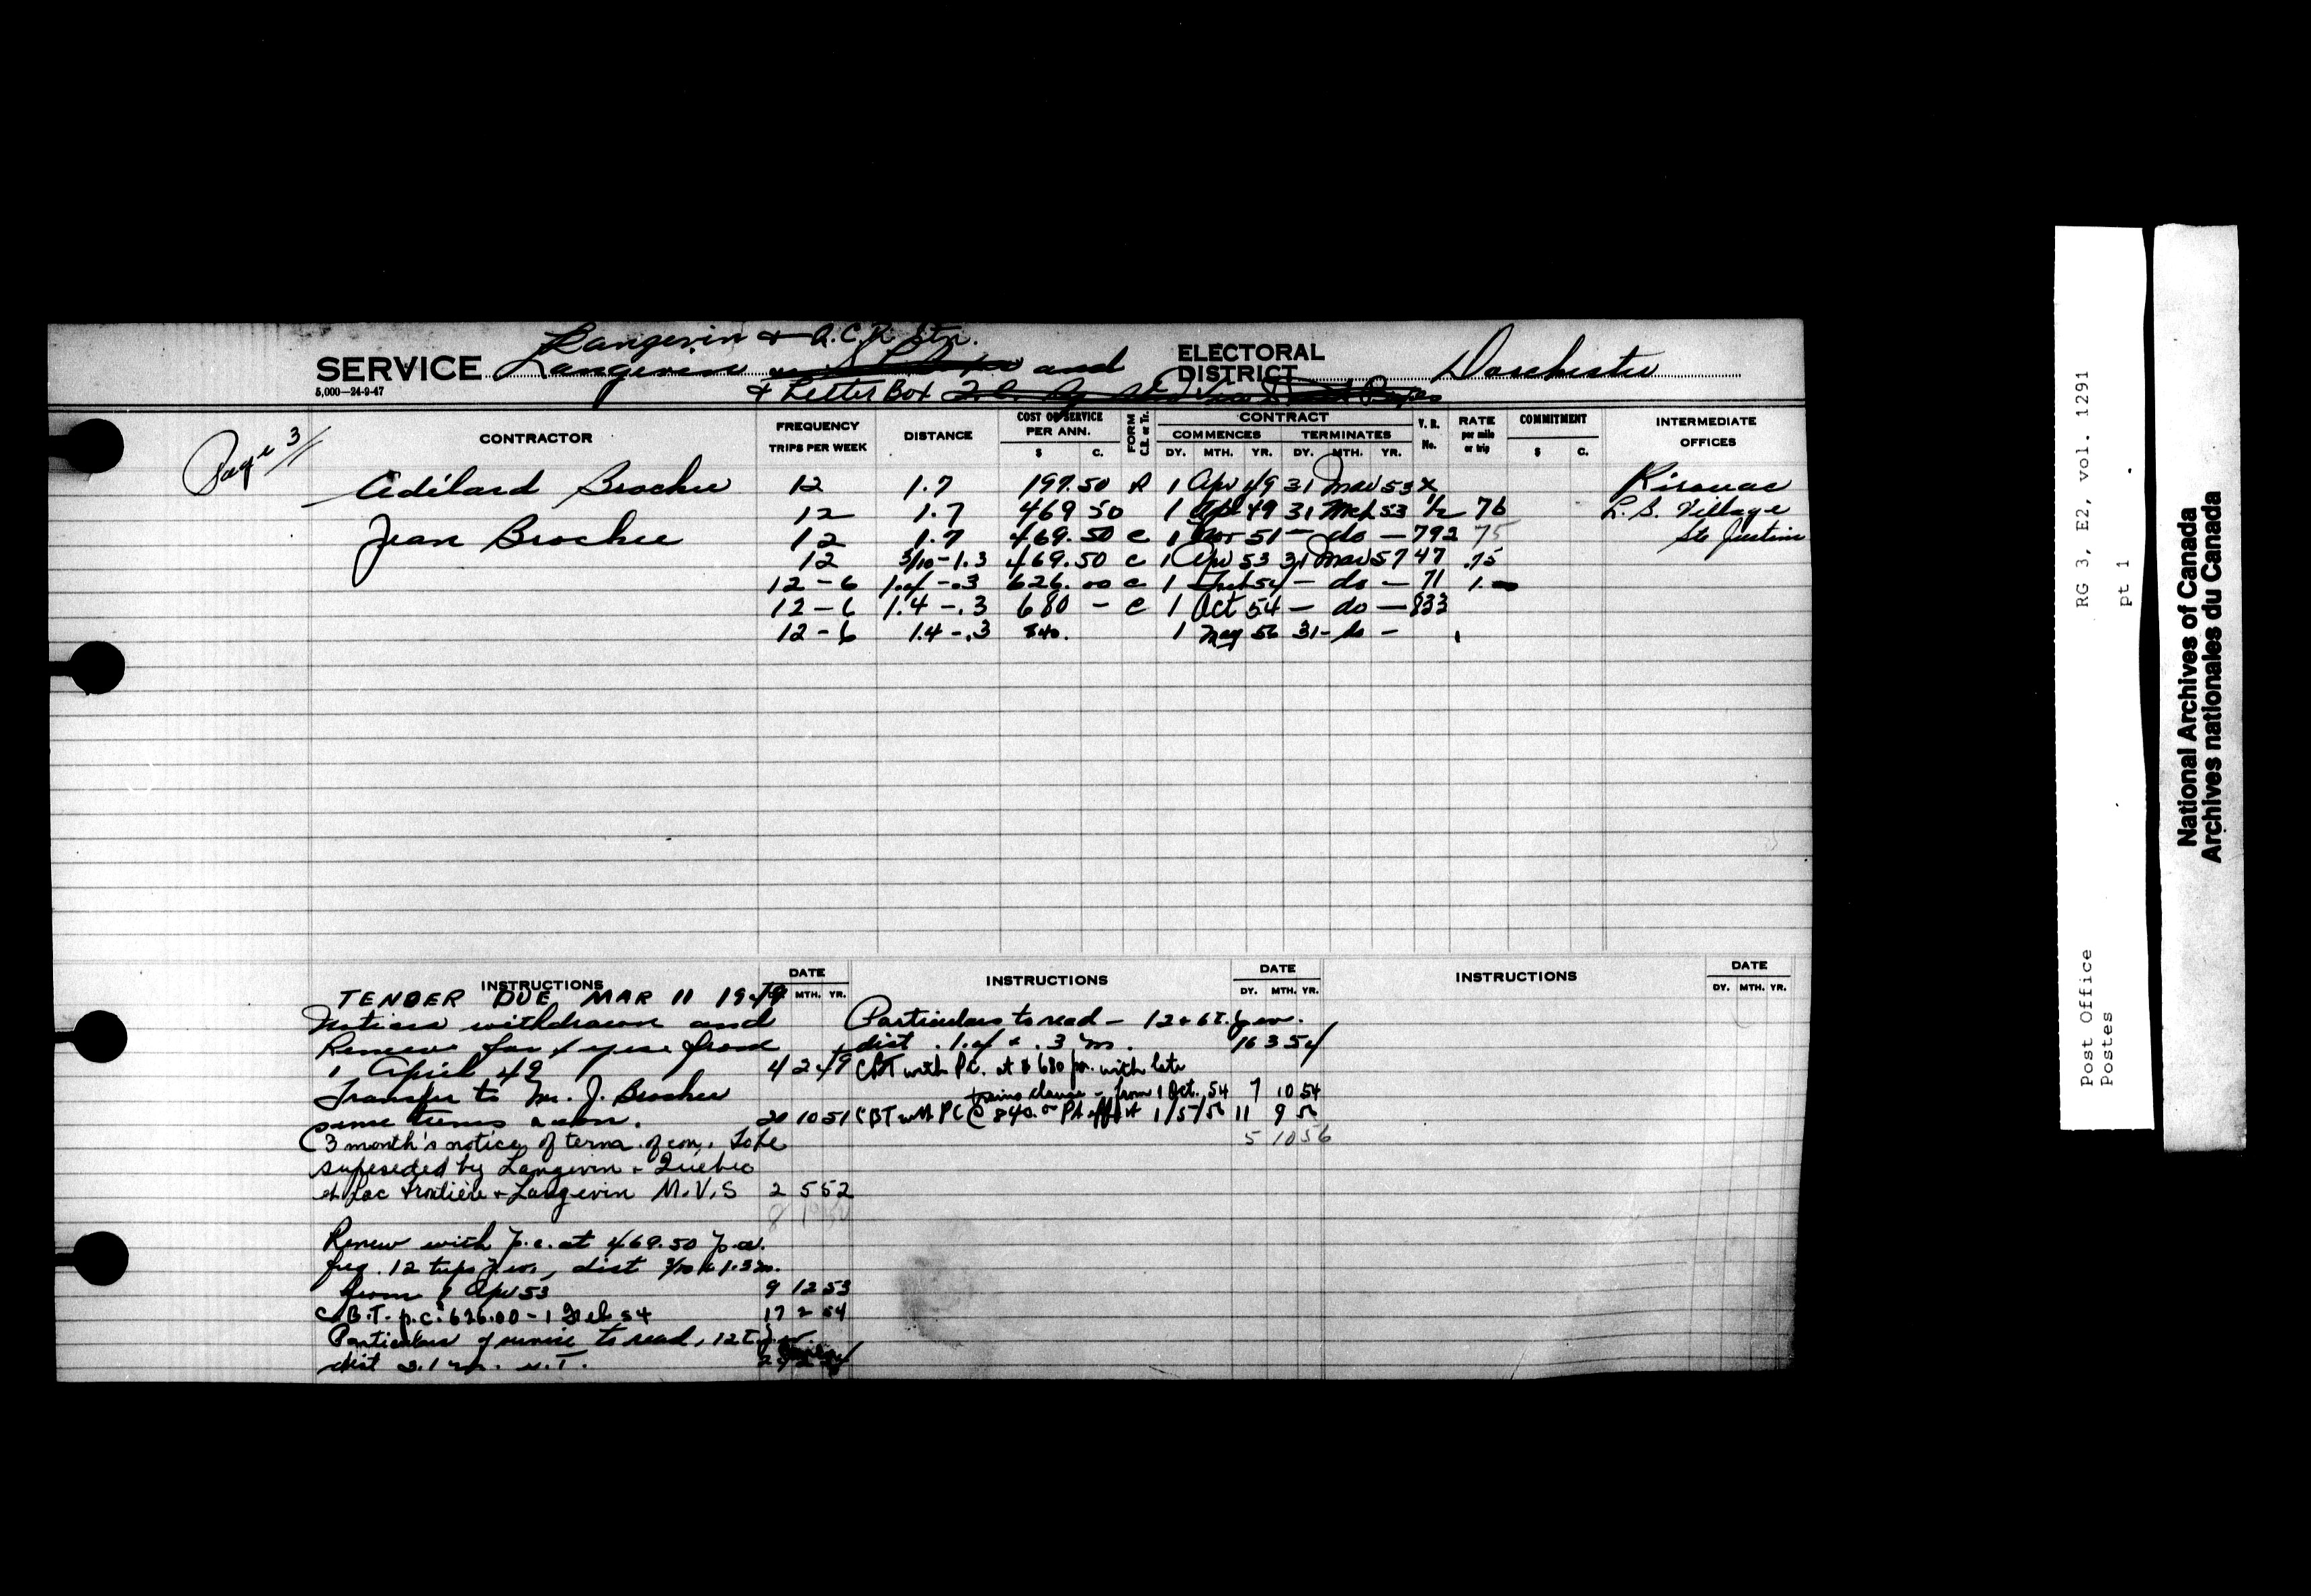 Langevin & Q.C.R. Stn.
SERVICE Langevin and
ELECTORAL DISTRICT Dorchester
5,000—24-9-47
& Letter Box
Page 3
CONTRACTOR
FREQUENCY TRIPS PER WEEK
DISTANCE
COST OF SERVICE PER ANN. $ C.
FORM C.B. or Tr.
CONTRACT
COMMENCES DY. MTH. YR.
TERMINATES DY. MTH. YR.
V. R. No.
RATE per mile or trip
COMMITMENT $ C.
INTERMEDIATE OFFICES
Adélard Brochu 12 1.7 197.50 R 1 Apr 49 31 Mar 53 x
12 1.7 469 50 1 Apl 49 31 Mch 53 1/2 76 L.B. Village
Jean Brochu 12 1.7 469.50 C 1 Nov 51 — do — 792 75 Ste Justine
12 3/10-1.3 469.50 C 1 Apr 53 31 Mar 57 47 .75
12-6 1.4-.3 626.00 C 1 Feb 54 — do — 71 1.
12-6 1.4-.3 680 — C 1 Oct 54 — do — 833
12-6 1.4-.3 840. 1 May 56 31 - do -
INSTRUCTIONS
DATE
MTH. YR.
TENDER DUE MAR 11 1949
Notices withdrawn and
Renew for 4 years from
1 April 49 4 2 49
Transfer to Mr. J. Brochu
same terms & con. 20 10 51
(3 month's notice of termn. of con. to be
superseded by Langevin & Québec
et Lac Frontière & Langevin M.V.S 2 5 52
Renew with p.c. at 469.50 p.a.
freq. 12 trips p.w., dist 3/10 & 1.3 m.
from 1 Apr 53 9 12 53
C.B.T. p.c. 626.00 - 1 Feb 54 17 2 54
Particulars of service to read, 12 t.p.w.
dist 2.1 m.
INSTRUCTIONS
DATE
DY. MTH. YR.
Particulars to read — 12 & 6 t.p.w.
dist. 1.4 & .3 m. 16 3 54
CBT with P.C. at $680 p.a. with late
trains change - from 1 Oct. 54 7 10 54
CBT with PC @ 840.00 PA eff 1/5/56 11 9 56
5 10 56
INSTRUCTIONS
DATE
DY. MTH. YR.
RG 3, E2, vol. 1291
pt 1
Post Office
Postes
National Archives of Canada
Archives nationales du Canada